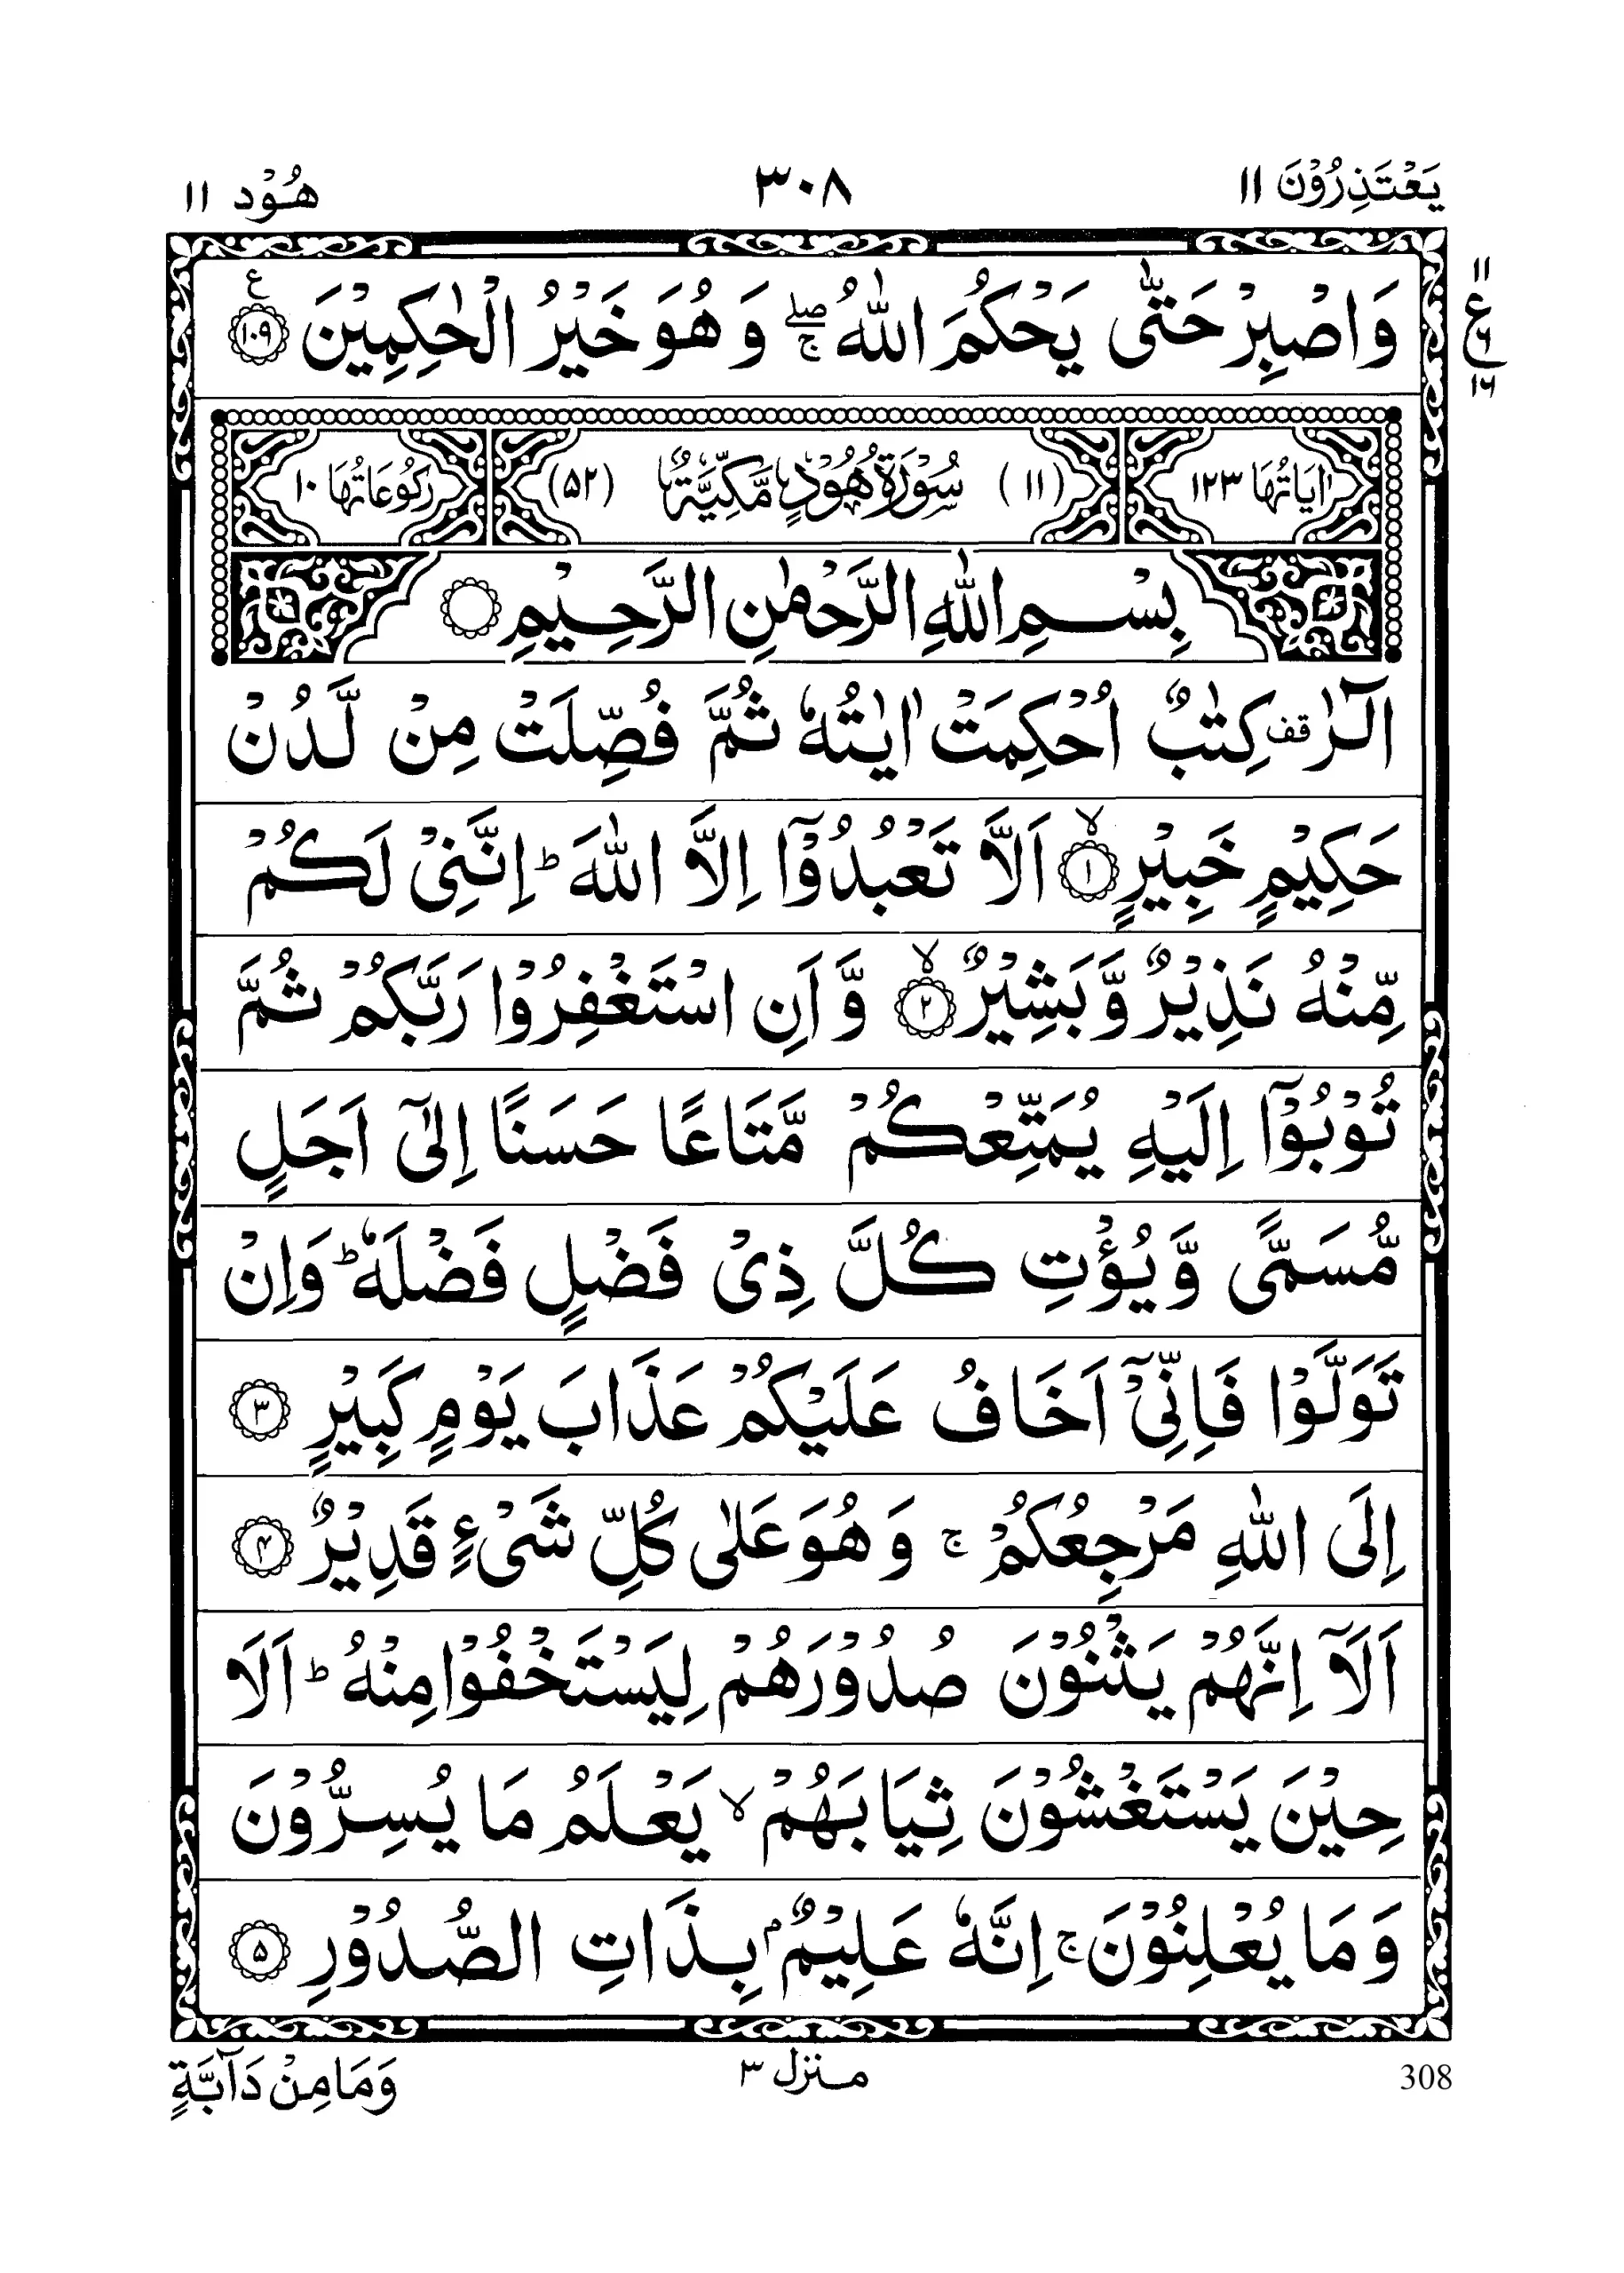 یَعْتَذِرُوْنَ ١١
٣٠٨
هُوْد ١١
وَاصْبِرْ حَتّٰی یَحْكُمَ اللّٰهُ ۚۖ وَهُوَ خَیْرُ الْحٰكِمِیْنَ ۧ ﴿١٠٩﴾
١١
ع
٩
١٦
اٰیَاتُهَا ١٢٣
(١١) سُوْرَةُ هُوْدٍ مَّكِّیَّةٌ (٥٢)
رُكُوْعَاتُهَا ١٠
بِسْمِ اللّٰهِ الرَّحْمٰنِ الرَّحِیْمِ
الٓرٰ قف كِتٰبٌ اُحْكِمَتْ اٰیٰتُهٗ ثُمَّ فُصِّلَتْ مِنْ لَّدُنْ
حَكِیْمٍ خَبِیْرٍ ۙ﴿١﴾ اَلَّا تَعْبُدُوْۤا اِلَّا اللّٰهَ ؕ اِنَّنِیْ لَكُمْ
مِّنْهُ نَذِیْرٌ وَّبَشِیْرٌ ۙ﴿٢﴾ وَّاَنِ اسْتَغْفِرُوْا رَبَّكُمْ ثُمَّ
تُوْبُوْۤا اِلَیْهِ یُمَتِّعْكُمْ مَّتَاعًا حَسَنًا اِلٰۤی اَجَلٍ
مُّسَمًّی وَّیُؤْتِ كُلَّ ذِیْ فَضْلٍ فَضْلَهٗ ؕ وَاِنْ
تَوَلَّوْا فَاِنِّیْۤ اَخَافُ عَلَیْكُمْ عَذَابَ یَوْمٍ كَبِیْرٍ ﴿٣﴾
اِلَی اللّٰهِ مَرْجِعُكُمْ ۚ وَهُوَ عَلٰی كُلِّ شَیْءٍ قَدِیْرٌ ﴿۴﴾
اَلَاۤ اِنَّهُمْ یَثْنُوْنَ صُدُوْرَهُمْ لِیَسْتَخْفُوْا مِنْهُ ؕ اَلَا
حِیْنَ یَسْتَغْشُوْنَ ثِیَابَهُمْ ۙ یَعْلَمُ مَا یُسِرُّوْنَ
وَمَا یُعْلِنُوْنَ ۚ اِنَّهٗ عَلِیْمٌۢ بِذَاتِ الصُّدُوْرِ ﴿۵﴾
308
منزل ٣
وَمَا مِنْ دَآبَّةٍ